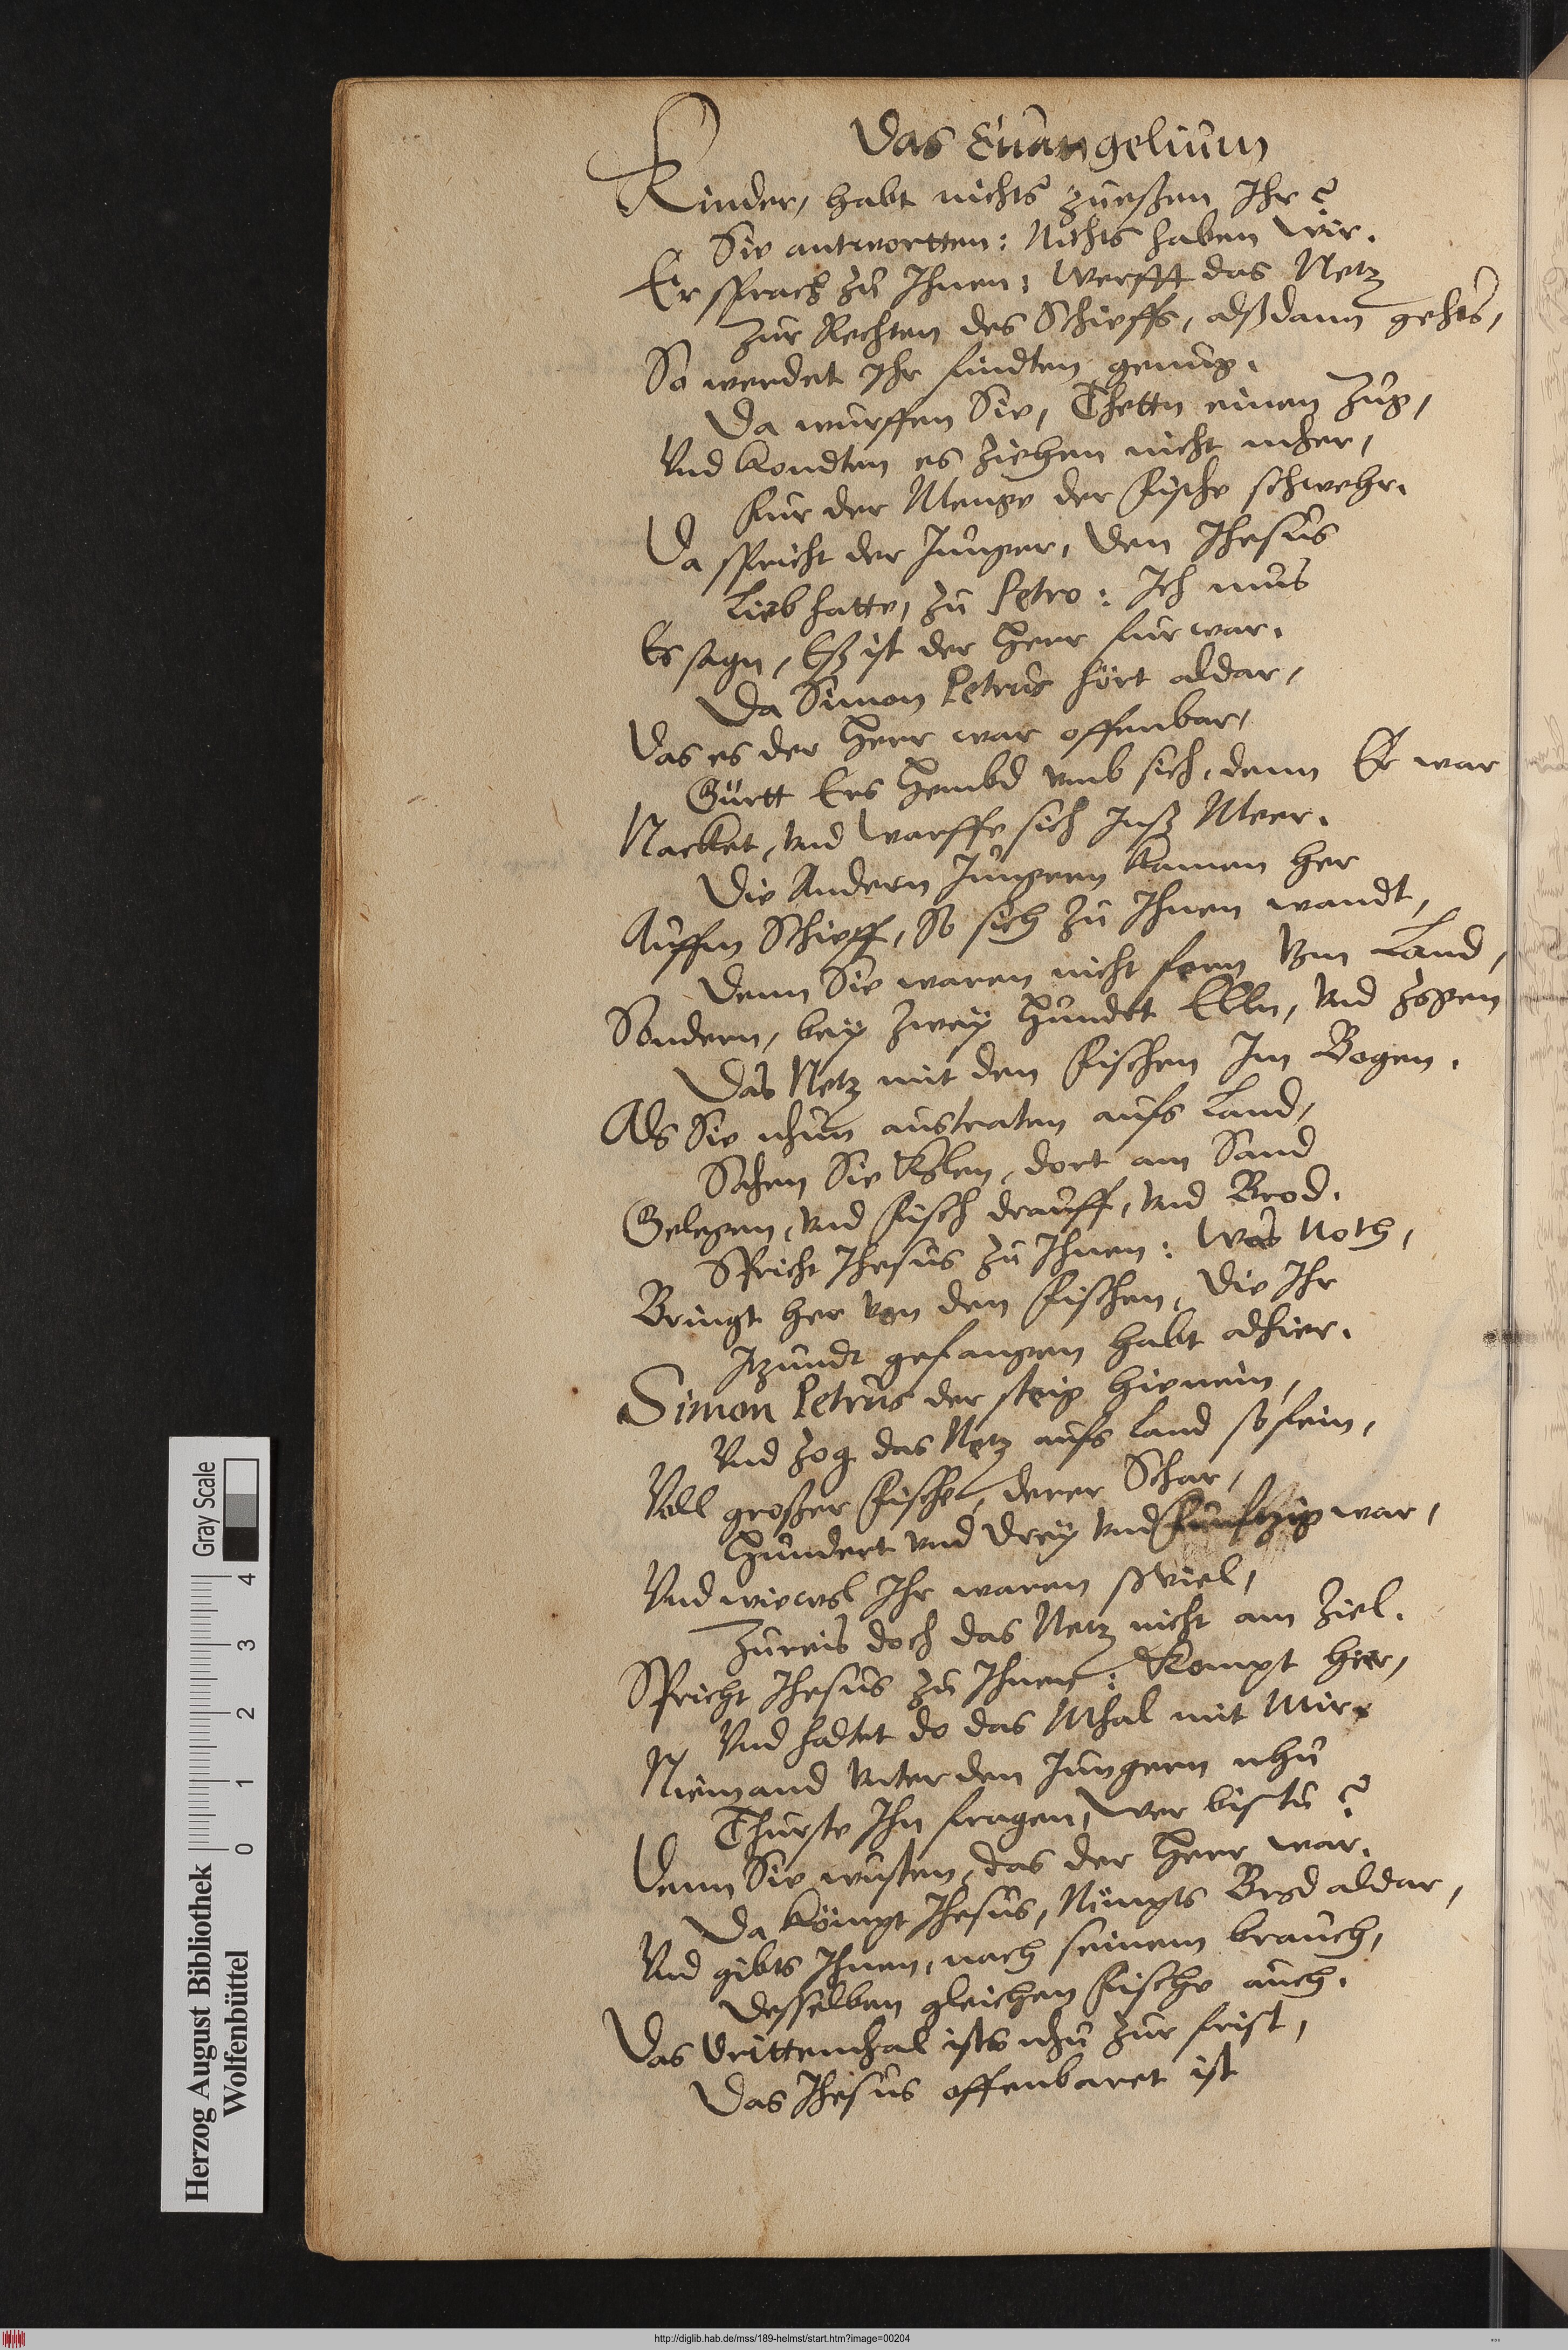 Das Euangelium
Kinder, habt nichts zueßen Ihr?
Sie antwortten: Nichts haben wir.
Er sprach zu Ihnen: Werfft das Netz
Zur Rechten des Schieffs, alßdann gehts,
So werdet Ihr findten genug.
Da wurffen Sie, Thettn einen Zug,
Vnd kondten es ziehen nicht mher,
Fur der Menge der Fische schwehr.
Da spricht der Junger, den Jhesus
Lieb hatte, zu Petro: Ich mus
Es sagn, Eß ist der Herr furwar.
Da Simon Petrus hört aldar,
Das es der Herr war offenbar,
Gürtt Ers Hembd vmb sich, denn Er war
Nacket, vnd warffe sich Inß Meer.
Die Andern Jungern kamen her
Auffm Schieff, So sich zu Ihnen wandt,
Denn Sie waren nicht fern Vom Land,
Sondern, bey zwey Hundet Elln, vnd zogen
Das Netz mit den Fischen Im Bogen.
Als Sie nhun austraten aufs Land,
Sahen Sie Kolen, dort am Sand
Gelegen, vnd Fisch drauff, vnd Brod.
Spricht Jhesus zu Ihnen: Was Noth,
Bringt her von den Fischen, die Ihr
Itzundt gefangen habt alhier.
Simon Petrus der steig hienein,
Vnd zog das Netz aufs Land so fein,
Voll großer Fische, derer Schar,
Hundert vnd Drey vnd Funftzig war,
Vnd wiewol Ihr waren so viel,
Zureis doch das Netz nicht am Ziel.
Spricht Jhesus zu Ihnen: Kompt hier,
Vnd haltet do das Mhal mit Mir.
Niemand Vnter den Jungern nhu
Thurste Ihn fragen, Wer bistu?
Denn Sie wusten, das der Herr war.
Da kömpt Jhesus, Nimpts Brod aldar,
Vnd gibts Ihnen, nach seinem brauch,
Desselben gleichen Fische auch.
Das Drittemhal ists nhu zur frist,
Das Jhesus offenbaret ist
Herzog August Bibliothek
Wolfenbüttel
0 1 2 3 4
Gray Scale
http://diglib.hab.de/mss/189-helmst/start.htm?image=00204